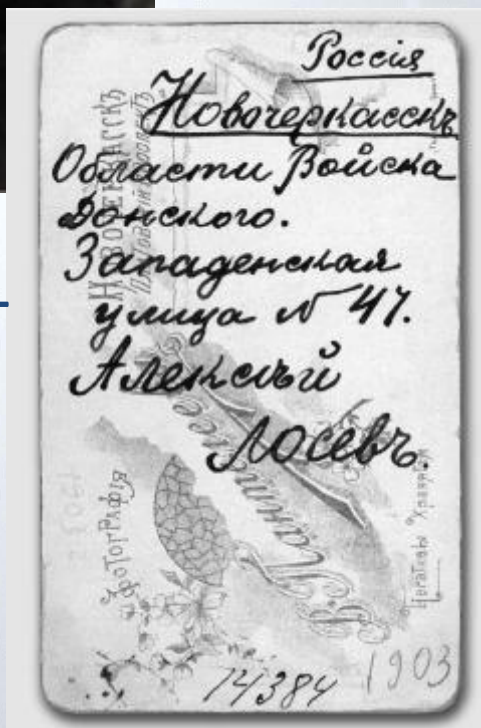 Россія
Новочеркасскъ
Области Войска
Донского.
Западенская
улица № 47.
Алексѣй
Лосевъ.
14384
1903
НОВОЧЕРКАССКЪ
ФОТОГРАФІЯ
Негативы Хранятся